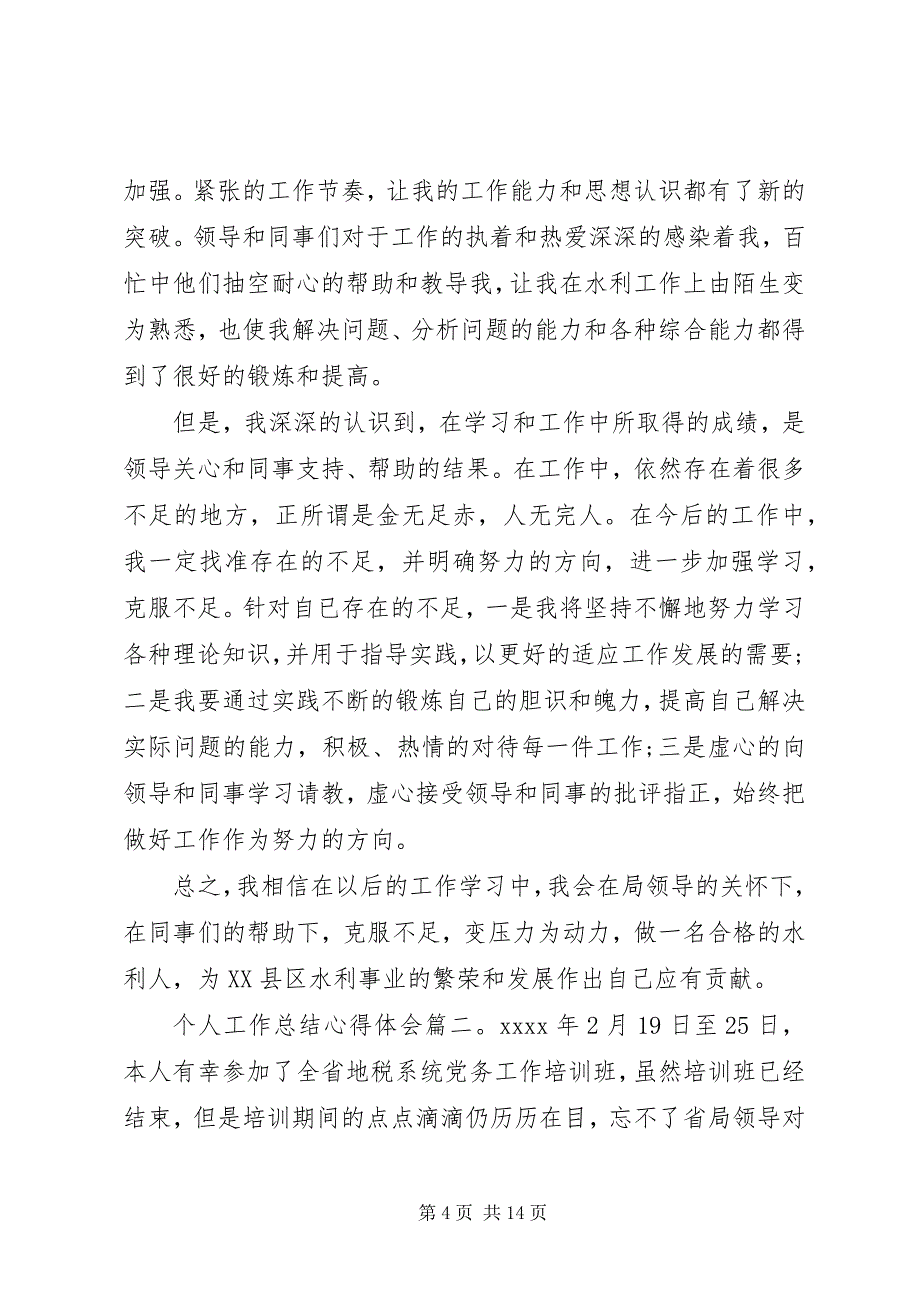 加强。紧张的工作节奏，让我的工作能力和思想认识都有了新的
突破。领导和同事们对于工作的执着和热爱深深的感染着我，百
忙中他们抽空耐心的帮助和教导我，让我在水利工作上由陌生变
为熟悉，也使我解决问题、分析问题的能力和各种综合能力都得
到了很好的锻炼和提高。
但是，我深深的认识到，在学习和工作中所取得的成绩，是
领导关心和同事支持、帮助的结果。在工作中，依然存在着很多
不足的地方，正所谓是金无足赤，人无完人。在今后的工作中，
我一定找准存在的不足，并明确努力的方向，进一步加强学习，
克服不足。针对自已存在的不足，一是我将坚持不懈地努力学习
各种理论知识，并用于指导实践，以更好的适应工作发展的需要;
二是我要通过实践不断的锻炼自己的胆识和魄力，提高自己解决
实际问题的能力，积极、热情的对待每一件工作;三是虚心的向
领导和同事学习请教，虚心接受领导和同事的批评指正，始终把
做好工作作为努力的方向。
总之，我相信在以后的工作学习中，我会在局领导的关怀下，
在同事们的帮助下，克服不足，变压力为动力，做一名合格的水
利人，为 XX 县区水利事业的繁荣和发展作出自己应有贡献。
个人工作总结心得体会篇二。xxxx 年 2 月 19 日至 25 日，
本人有幸参加了全省地税系统党务工作培训班，虽然培训班已经
结束，但是培训期间的点点滴滴仍历历在目，忘不了省局领导对
第 4 页 共 14 页